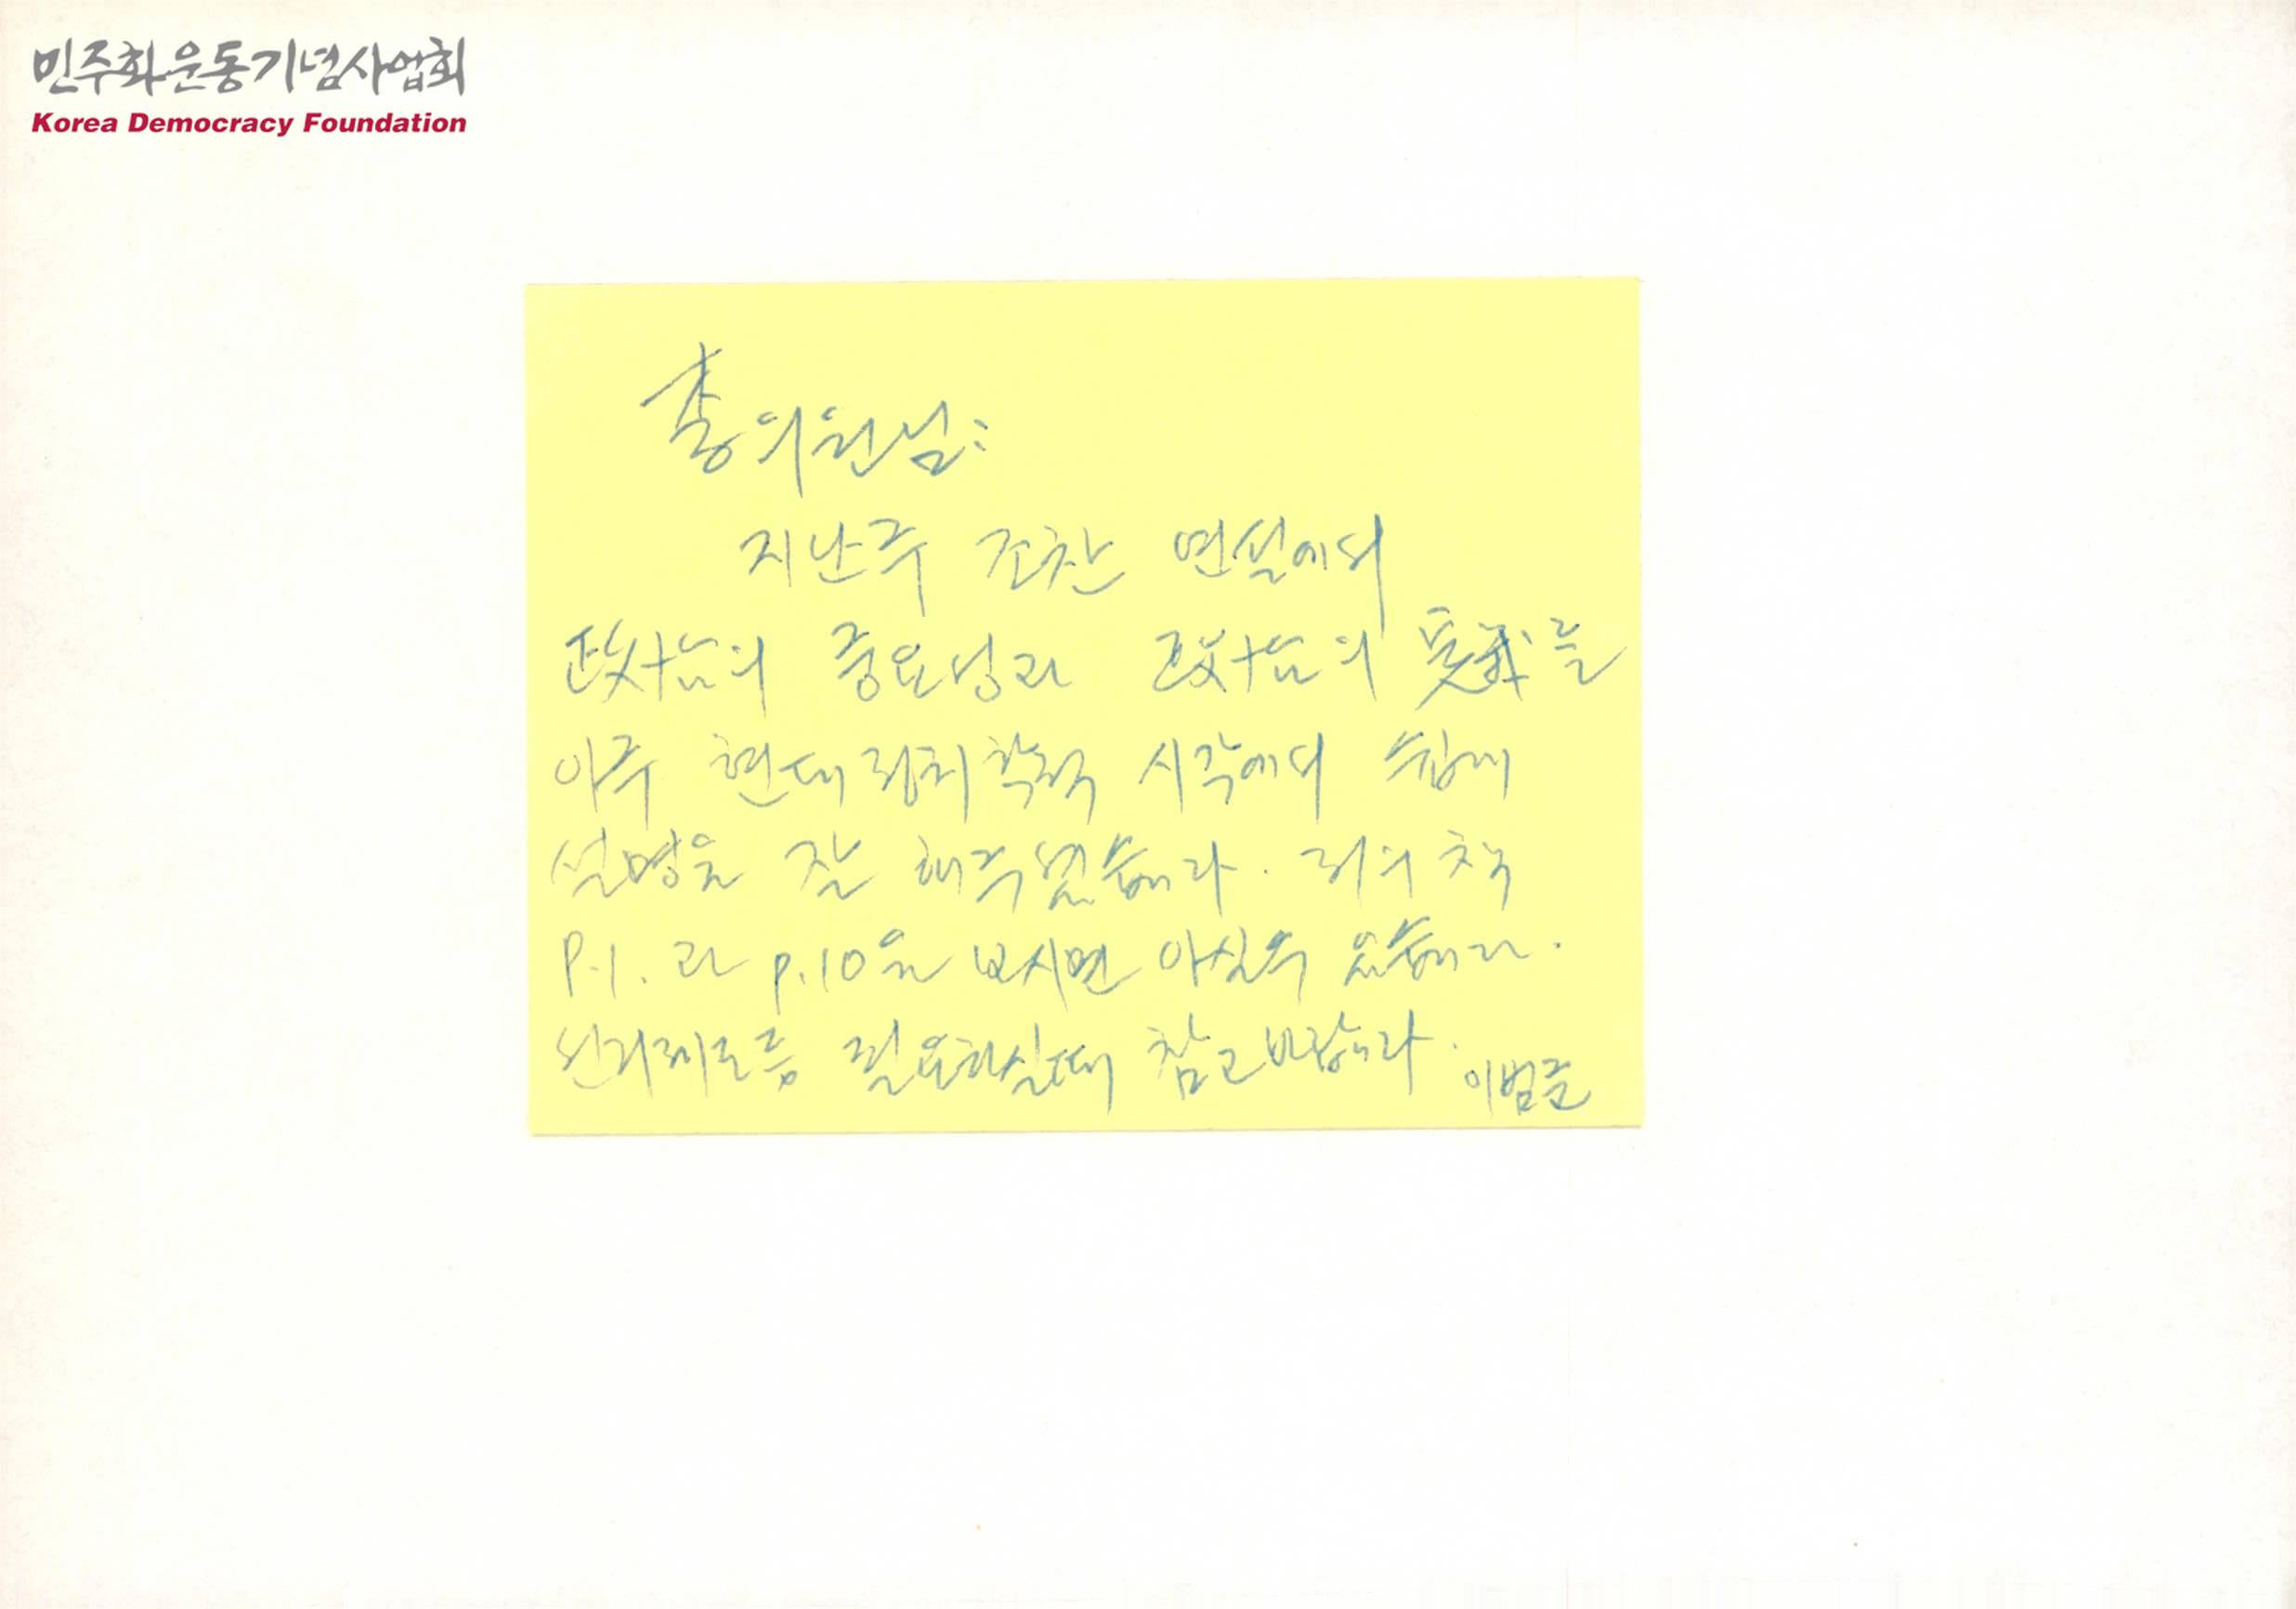 민주화운동기념사업회
Korea Democracy Foundation
李의원님:
지난주 조찬 연설에서
政治의 중요성과 政治의 를
아주 현대정치학적 시각에서 쉽게
설명을 잘 해주셨습니다. 저의 책
P.1.과 p.10을 보시면 아실수 있습니다.
필요하실때 참고바랍니다.
이범준